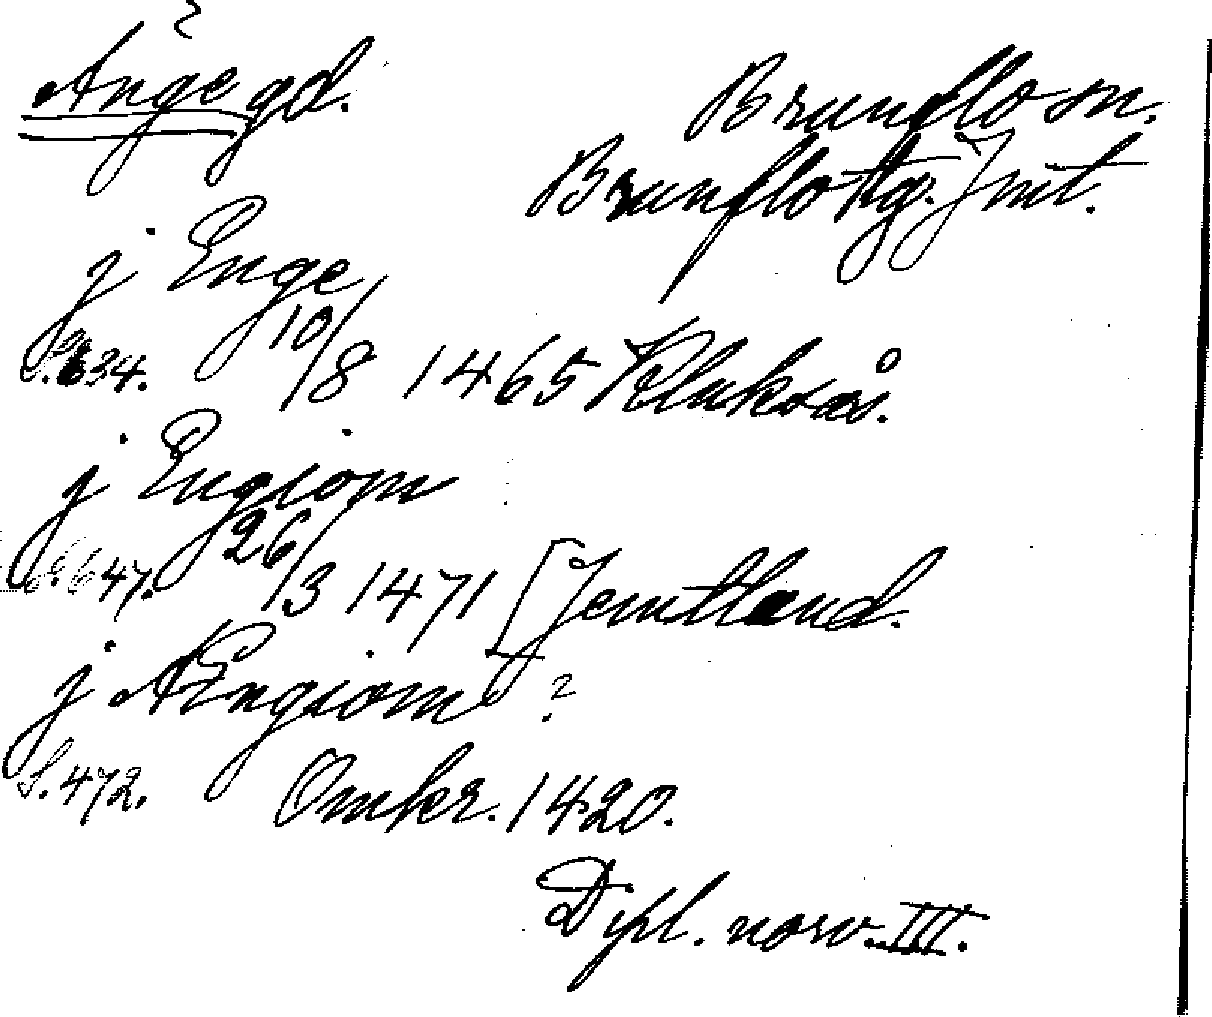 Ånge gd.
Brunflo sn.
Brunflo tg. Jmt.
j Enge
S. 634. 10/8 1465 Kluksås.
j Engiom
S. 647. 26/3 1471 [Jemtland.
j Engiom ?
S. 472. Omkr. 1420.
Dipl. norv. III.